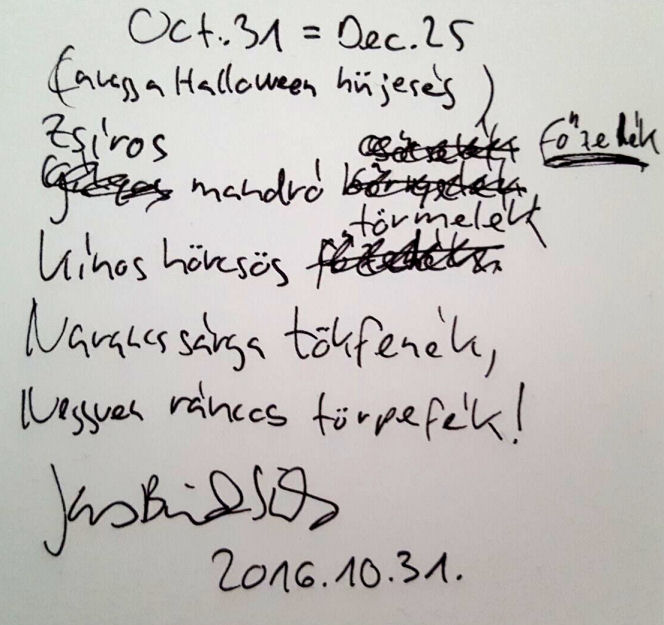 Oct. 31 = Dec. 25
(avagy a Halloween hüjeség)
Zsíros főzelék
mandró
törmelék
Kínos hörcsög
Narancssárga tökfenék,
Negyven ráncos törpefék!
2016.10.31.